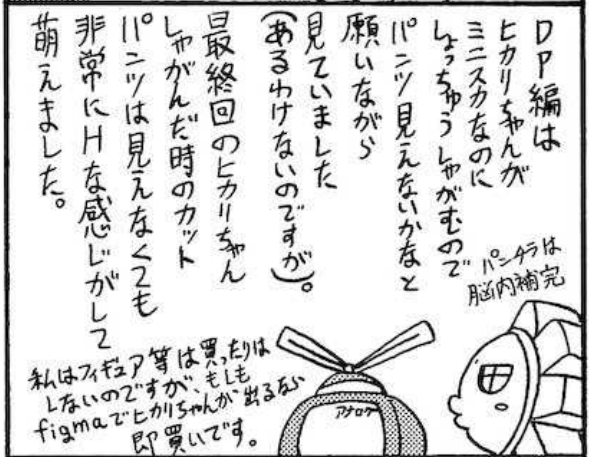 DP編は
ヒカリちゃんが
ミニスカなのに
しょっちゅうしゃがむので
パンツ見えないかなと
願いながら
見ていました
(あるわけないのですが)。
最終回のヒカリちゃん
しゃがんだ時のカット
パンツは見えなくても
非常にHな感じがして
萌えました。
パンチラは
脳内補完
私はフィギュア等は買ったりは
しないのですが、もしも
figmaでヒカリちゃんが出るなら
即買いです。
アナログ